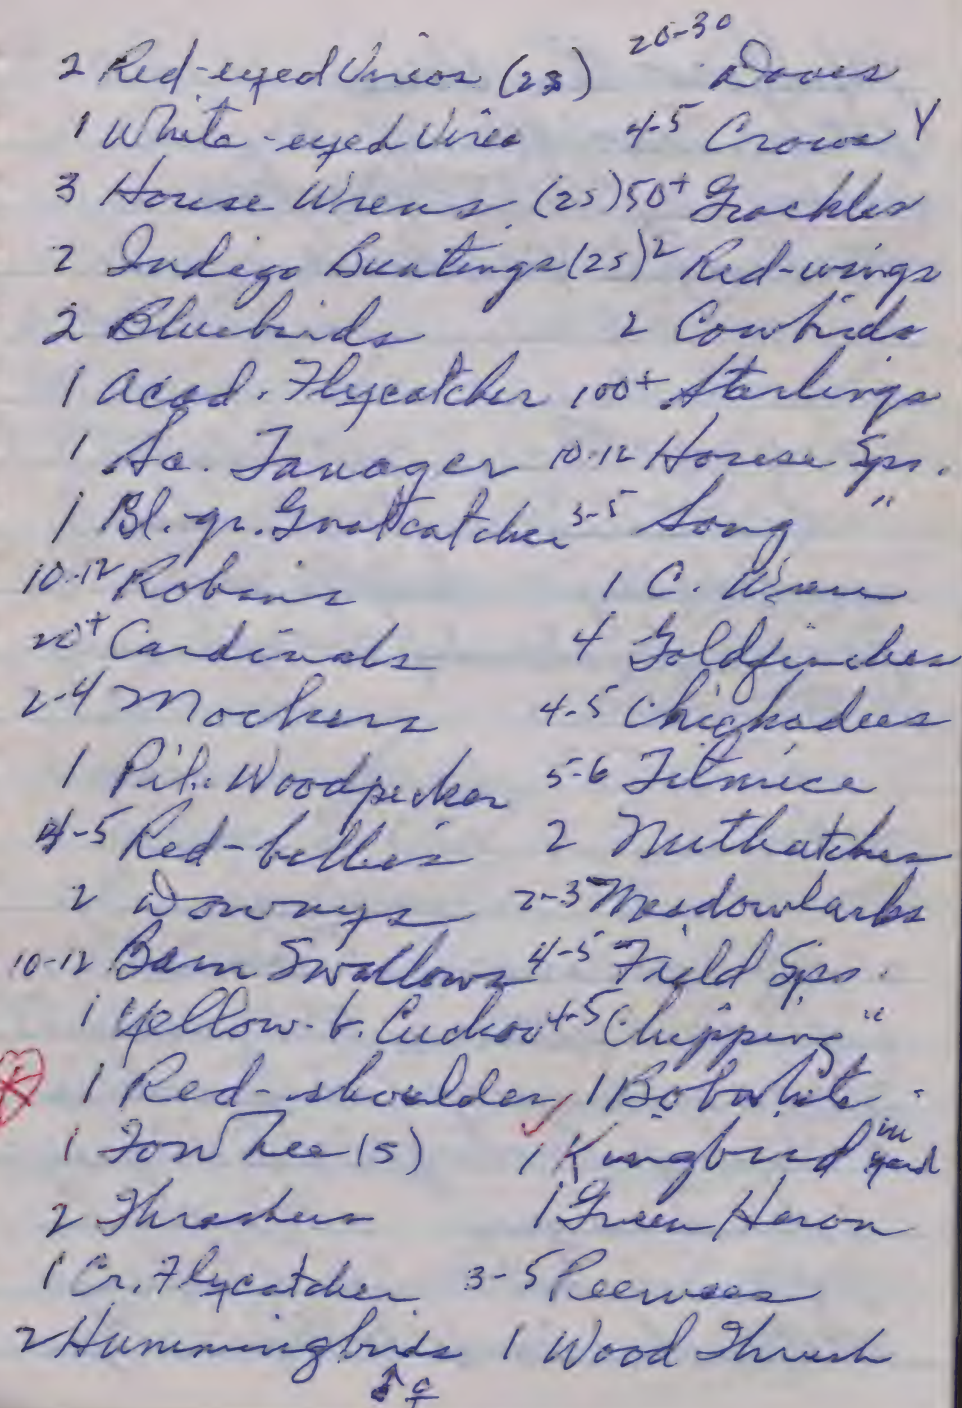 2 Red-eyed Vireos (2s)
1 White-eyed Vireo
3 House Wrens (2s)
2 Indigo Buntings (2s)
2 Bluebirds
1 Acad. Flycatcher
1 Su. Tanager
1 Bl.-gr. Gnatcatcher
10-12 Robins
20+ Cardinals
2-4 Mockers
1 Pil. Woodpecker
4-5 Red-bellies
2 Downys
10-12 Barn Swallows
1 Yellow-b. Cuckoo
1 Red-shoulder
1 Towhee (s)
2 Thrashers
1 Cr. Flycatcher
2 Hummingbirds
↑ ♀
20-30 Doves
4-5 Crows Y
50+ Grackles
2 Red-wings
2 Cowbirds
100+ Starlings
10-12 House Sps.
3-5 Song "
1 C. Wren
4 Goldfinches
4-5 Chickadees
5-6 Titmice
2 Nuthatches
2-3 Meadowlarks
4-5 Field Sps.
4-5 Chipping "
1 Bobwhite
1 Kingbird in yard
1 Green Heron
3-5 Peewees
1 Wood Thrush